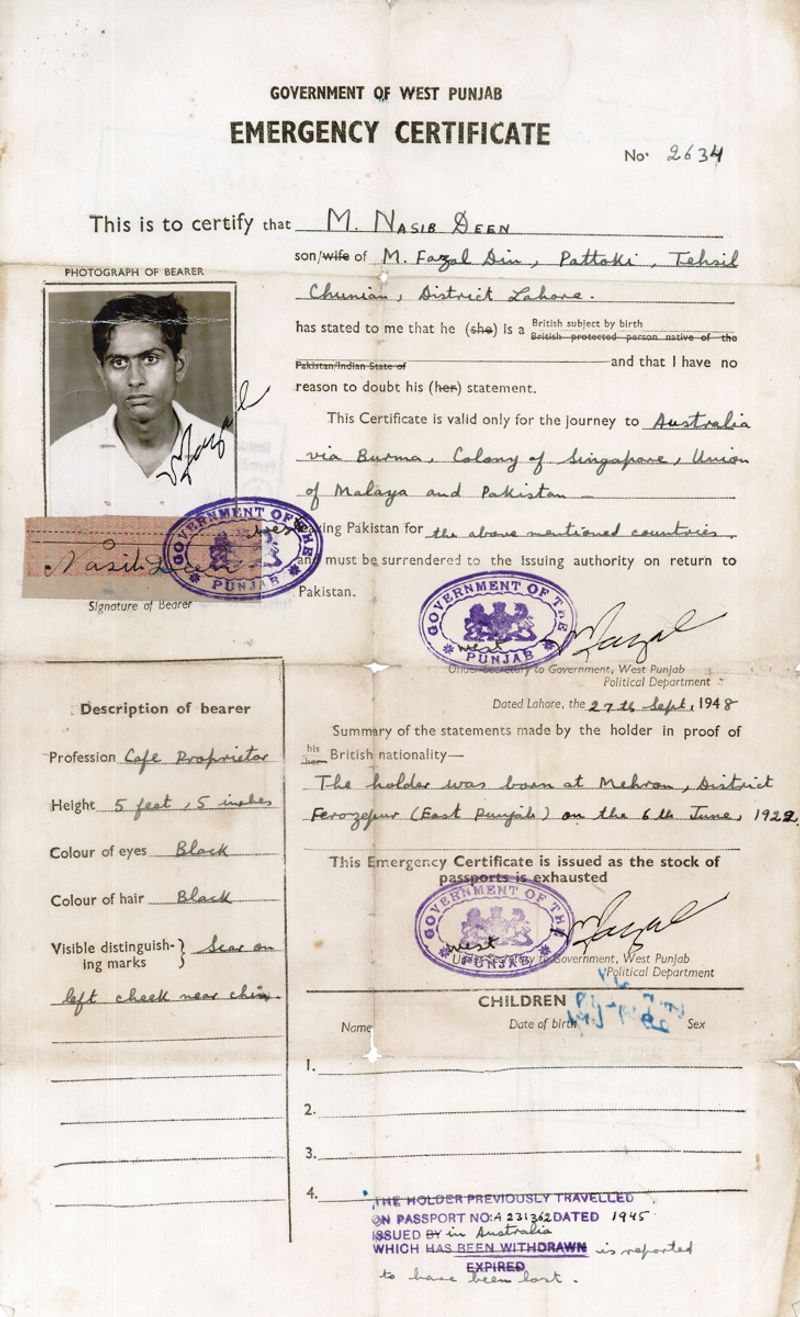 GOVERNMENT OF WEST PUNJAB
EMERGENCY CERTIFICATE
No. 2634
This is to certify that M. Nasib Deen
son/wife of M. Fazal Din, Pattoki, Tehsil
Chunian, District Lahore.
PHOTOGRAPH OF BEARER
has stated to me that he (she) is a British subject by birth
British protected person native of the
Pakistan/Indian State of and that I have no
reason to doubt his (her) statement.
This Certificate is valid only for the journey to Australia
via Burma, Colony of Singapore, Union
of Malaya and Pakistan —
leaving Pakistan for the above mentioned countries,
and must be surrendered to the issuing authority on return to
Pakistan.
GOVERNMENT OF THE
west
PUNJAB
Nasib Deen
Signature of Bearer
GOVERNMENT OF THE
west
PUNJAB
Under-Secretary to Government, West Punjab
Political Department
Dated Lahore, the 27th Sept, 1948
Description of bearer
Profession Cafe Proprietor
Height 5 feet, 5 inches
Colour of eyes Black
Colour of hair Black
Visible distinguish-
ing marks } Scar on
left cheek near chin.
Summary of the statements made by the holder in proof of
his
her British nationality—
The holder was born at Mehron, District
Ferozepur (East Punjab) on the 6th June, 1922
This Emergency Certificate is issued as the stock of
passports is exhausted
GOVERNMENT OF THE
west
PUNJAB
Under-Secretary to Government, West Punjab
Political Department
CHILDREN
Name Date of birth Sex
1.
2.
3.
4.
THE HOLDER PREVIOUSLY TRAVELLED
ON PASSPORT NO: A 231362 DATED 1945
ISSUED BY in Australia
WHICH HAS BEEN WITHDRAWN is reported
EXPIRED
to have been lost.